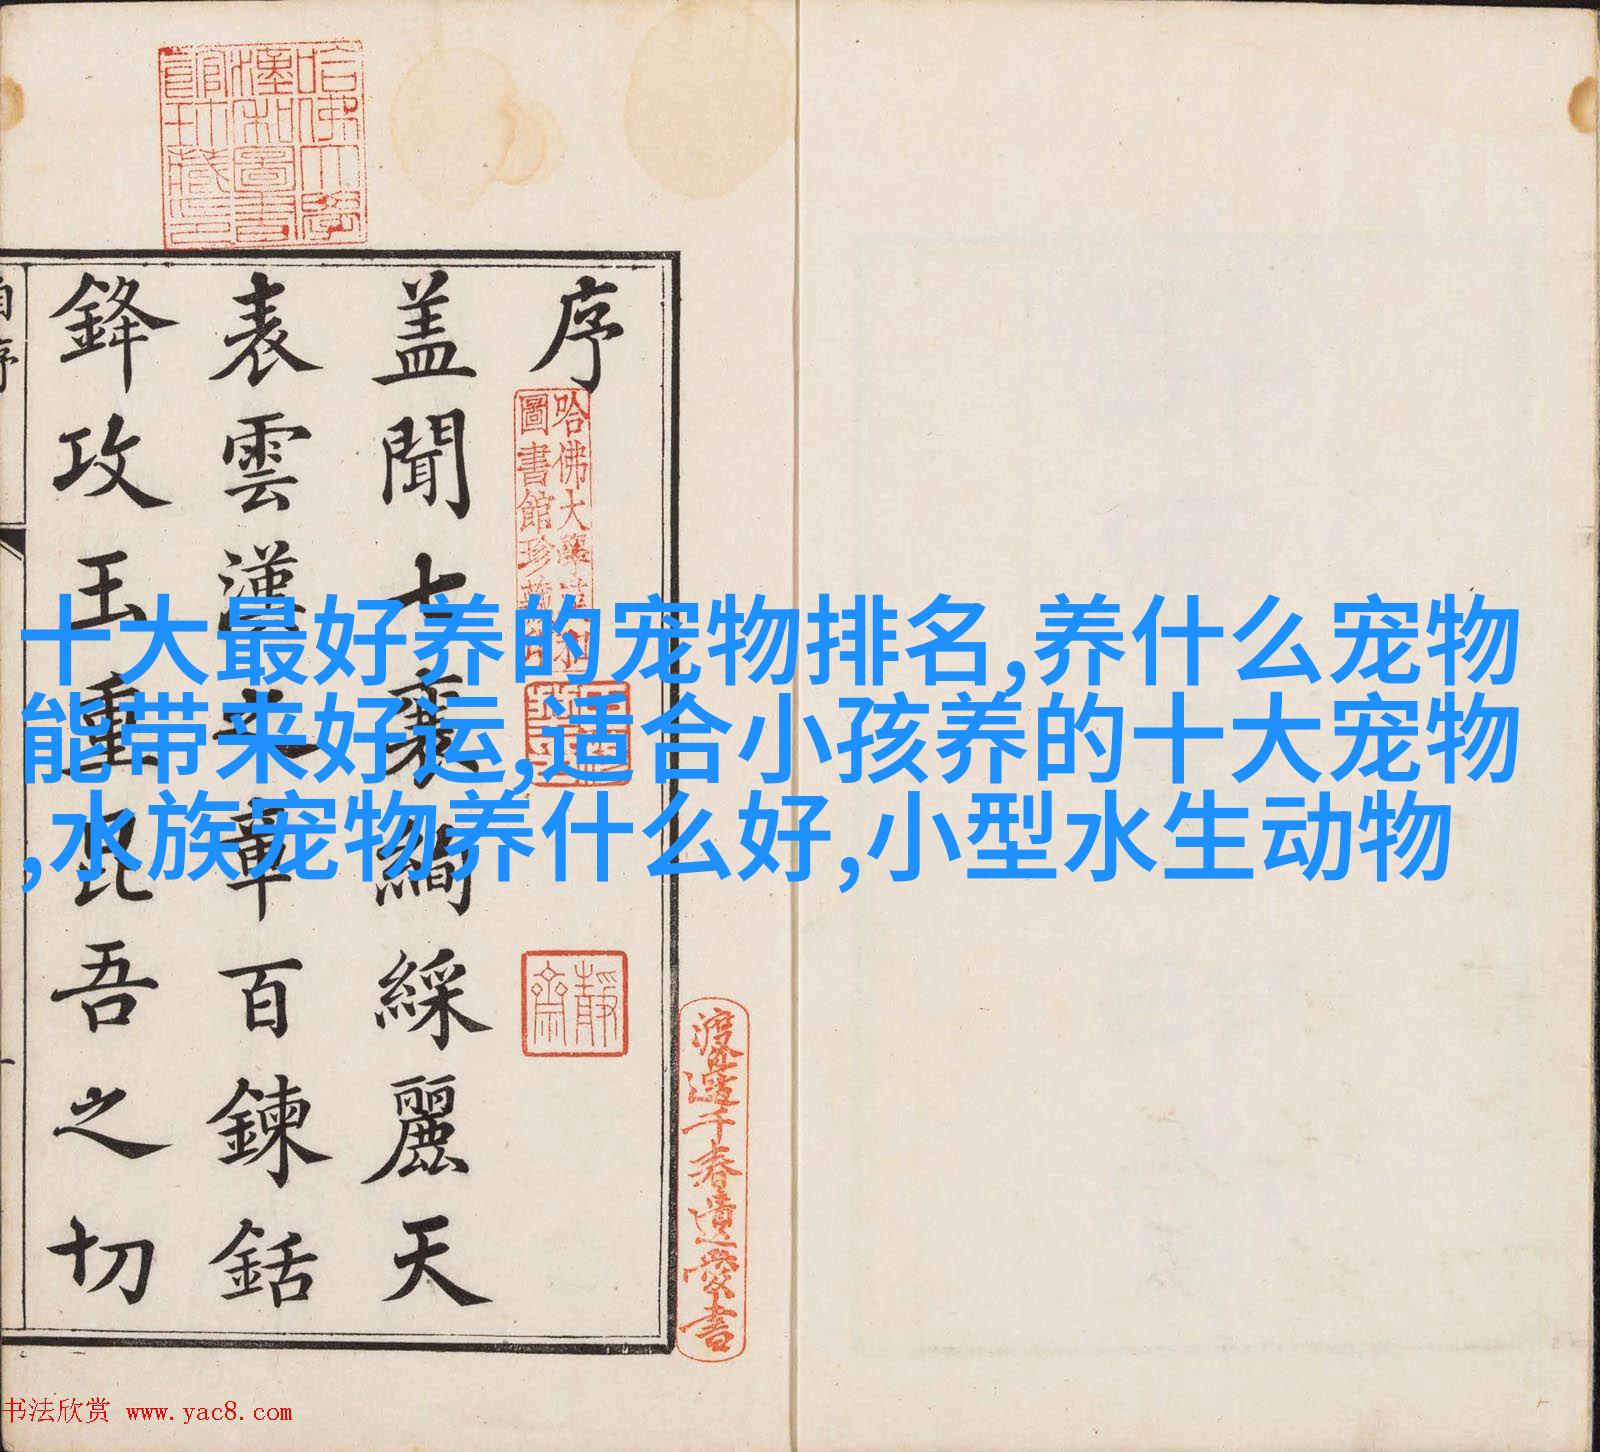 十大最好养的宠物排名,养什么宠物
能带来好运,适合小孩养的十大宠物
,水族宠物养什么好,小型水生动物
序
蓋聞七襄絢綵麗天
表雲漢之章百鍊銛
鋒攻玉重昆吾之切
自序
哈佛大學漢和
圖書館珍藏印
哈佛大學
漢和圖書
館珍藏印
靜齋
渡邊千春遺愛書
书法欣赏 www.yac8.com